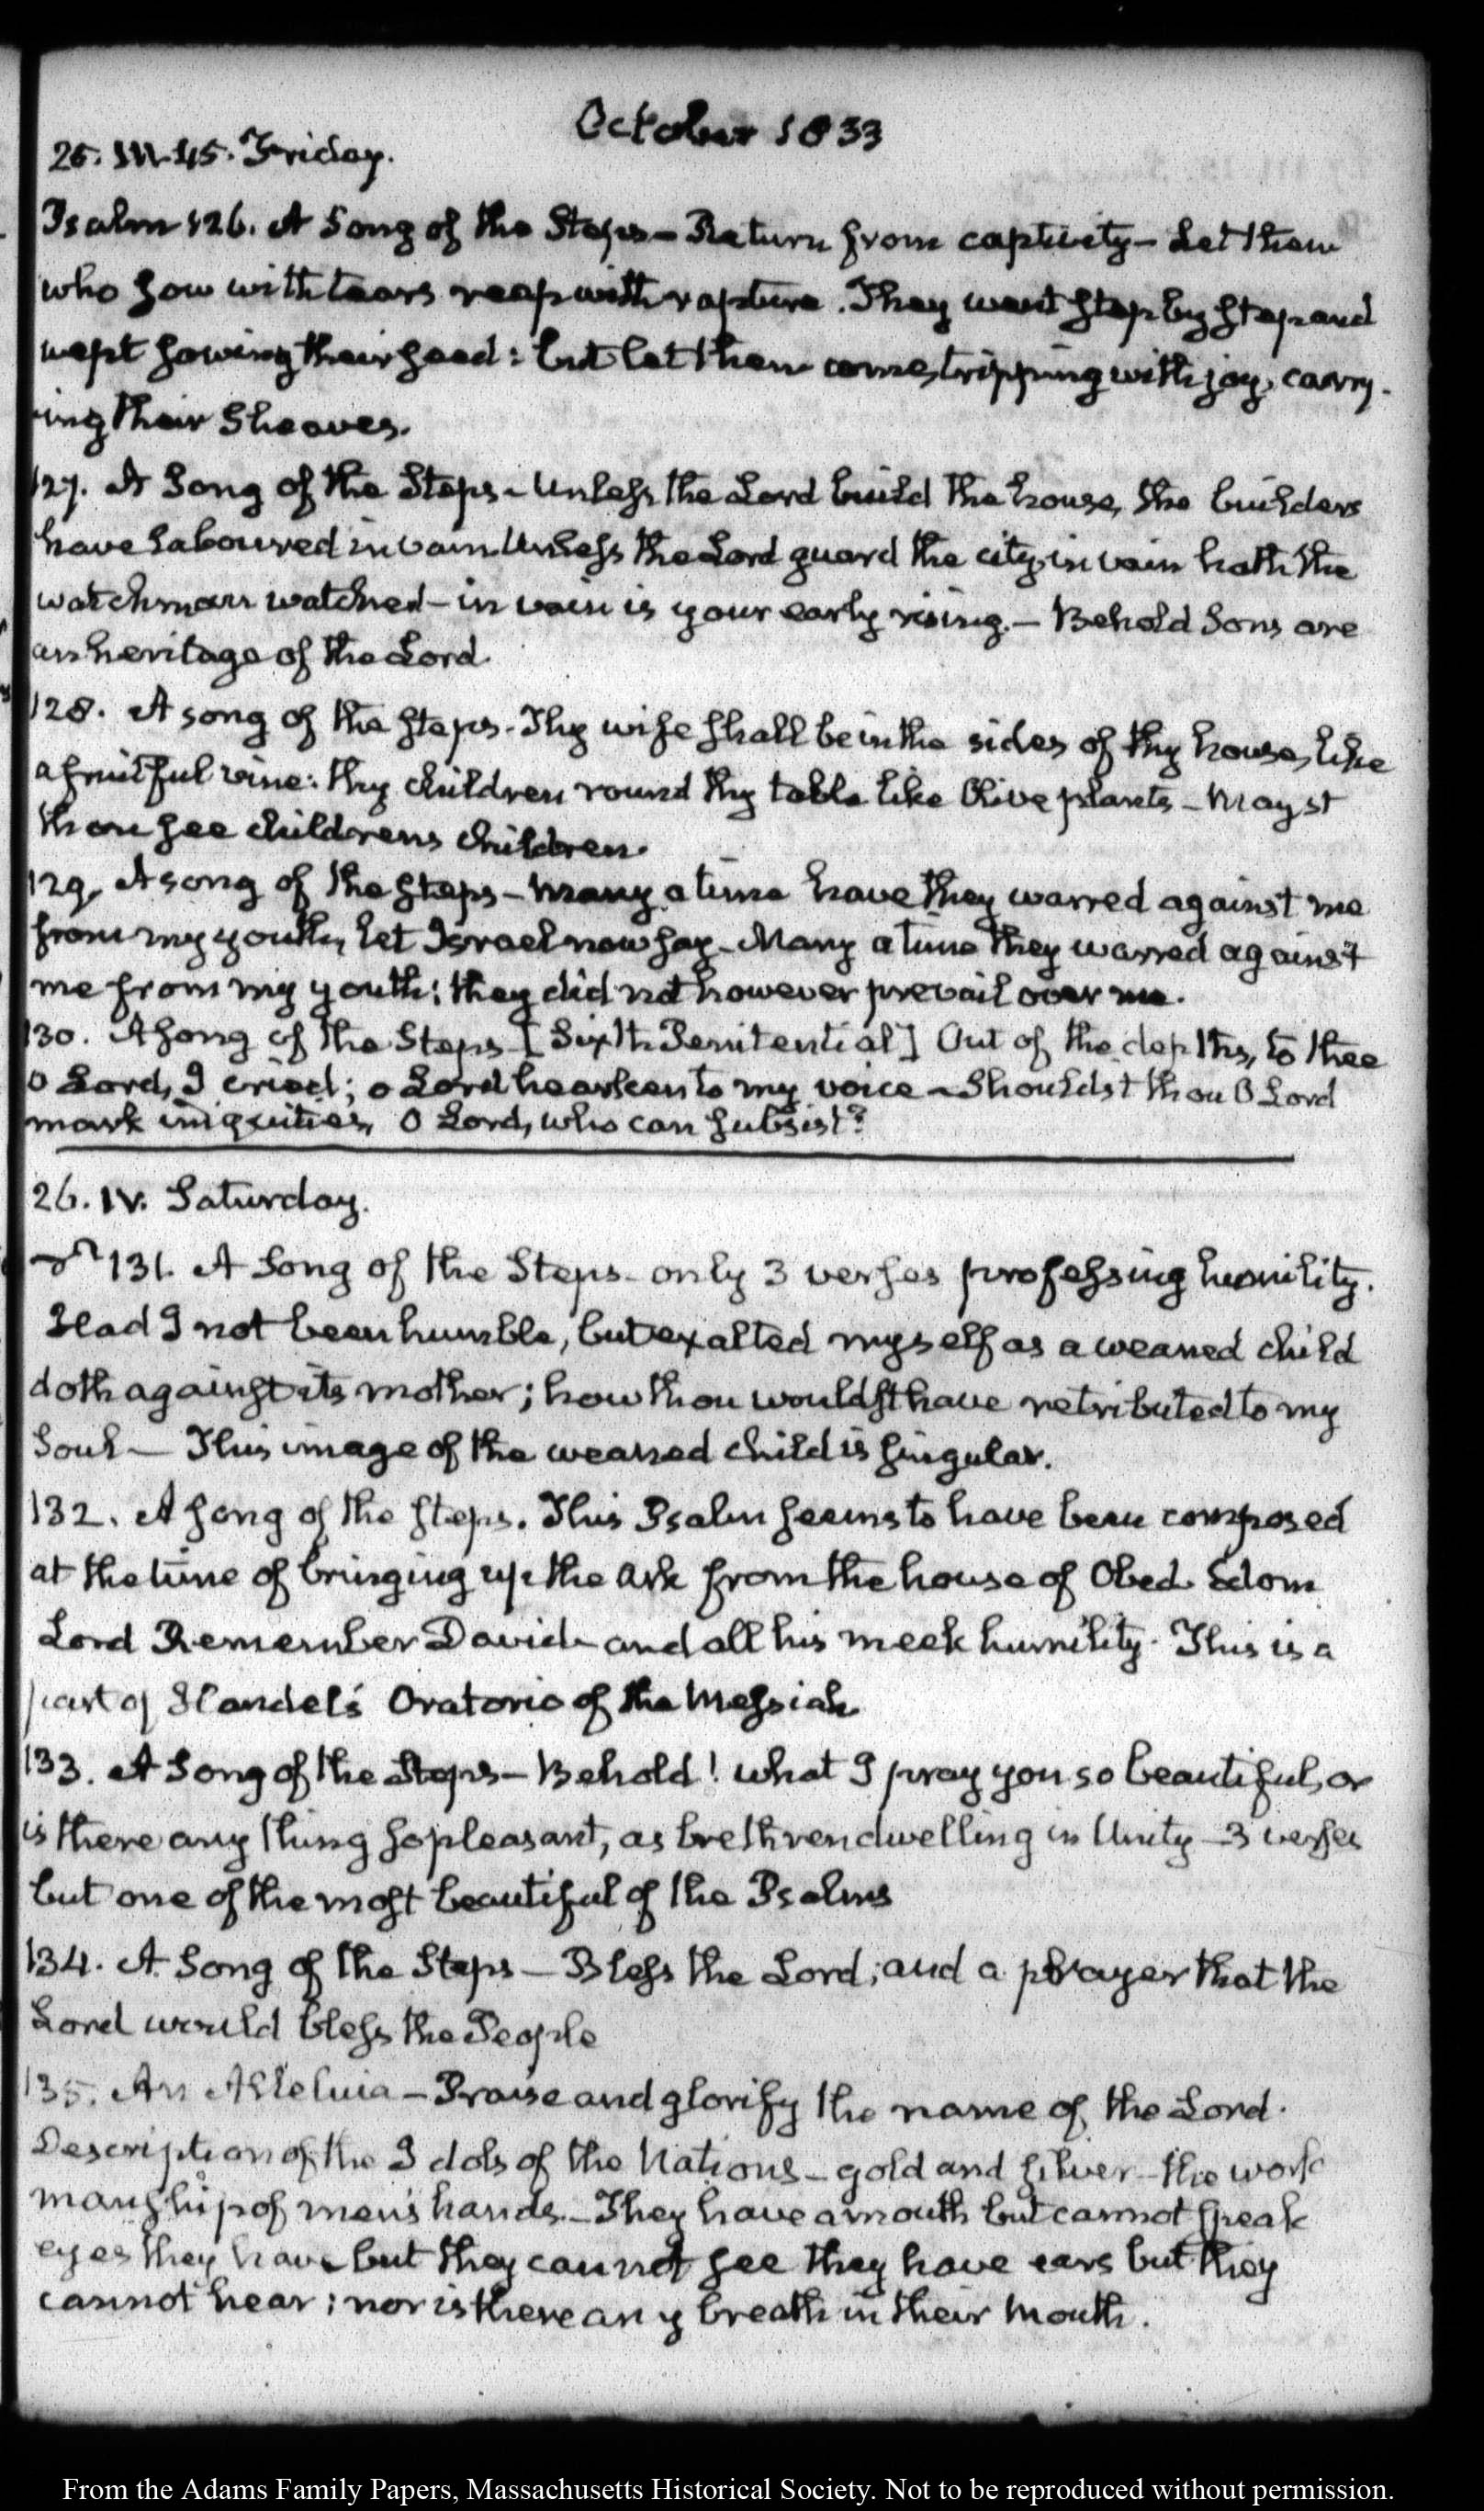 October 1833
25. III.45. Friday.
Psalm 126. A Song of the Steps – Return from captivity – Let them
who sow with tears reap with rapture. They went step by step and
wept sowing their seed: but let them come, tripping with joy, carry-
ing their Sheaves.
127. A Song of the Steps – Unless the Lord build the house, the builders
have laboured in vain Unless the Lord guard the city, in vain hath the
watchman watched – in vain is your early rising. – Behold Sons are
an heritage of the Lord.
128. A song of the steps. Thy wife shall be in the sides of thy house, like
a fruitful vine: thy children round thy table like Olive plants – Mayst
thou see childrens children.
129. A song of the steps – Many a time have they warred against me
from my youth, let Israel now say – Many a time they warred against
me from my youth: they did not however prevail over me.
130. A song of the Steps – [Sixth Penitential] Out of the depths, to thee
O Lord, I cried; o Lord hearken to my voice – Shouldst thou O Lord
mark iniquities, O Lord, who can subsist?
26. IV. Saturday.
131. A Song of the Steps – only 3 verses professing humility.
Had I not been humble, but exalted myself as a weaned child
doth against its mother; how thou wouldst have retributed to my
Soul – This image of the weaned child is singular.
132. A song of the steps. This Psalm seems to have been composed
at the time of bringing up the Ark from the house of Obed Edom
Lord Remember David and all his meek humility. This is a
part of Handel's Oratorio of the Messiah.
133. A Song of the Steps – Behold! what I pray you so beautiful, or
is there any thing so pleasant, as brethren dwelling in Unity – 3 verses
but one of the most beautiful of the Psalms
134. A Song of the Steps – Bless the Lord, and a prayer that the
Lord would bless the People
135. An Alleluia – Praise and glorify the name of the Lord.
Description of the Idols of the Nations – gold and silver – the work
manship of men's hands. – They have a mouth but cannot speak
eyes they have but they cannot see they have ears but they
cannot hear; nor is there any breath in their mouth.
From the Adams Family Papers, Massachusetts Historical Society. Not to be reproduced without permission.